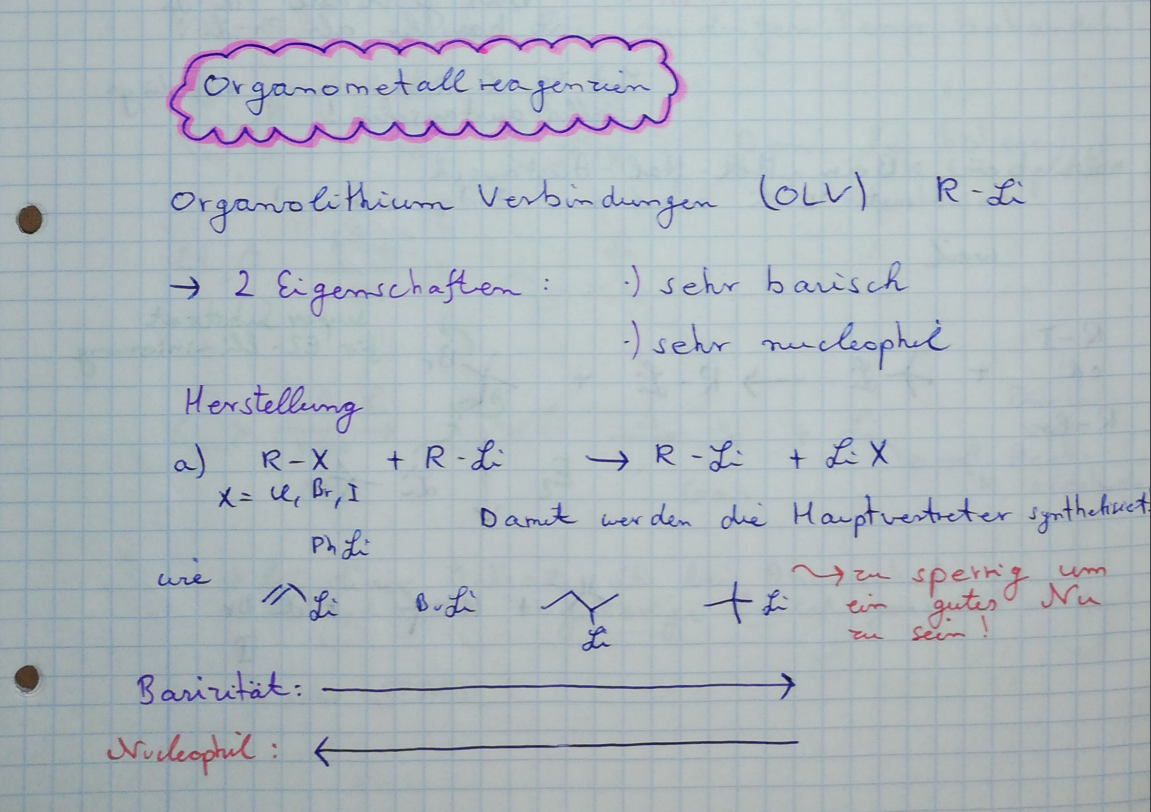 Organometallreagenzien
Organolithium Verbindungen (OLV) R-Li
→ 2 Eigenschaften: ·) sehr basisch
·) sehr nucleophil
Herstellung
a) R-X + R-Li → R-Li + LiX
X = Cl, Br, I
Damit werden die Hauptvertreter synthetisiert
PhLi
wie Li BuLi Li Li → zu sperrig um
ein gutes Nu
zu sein!
Basizität: →
Nucleophil: ←